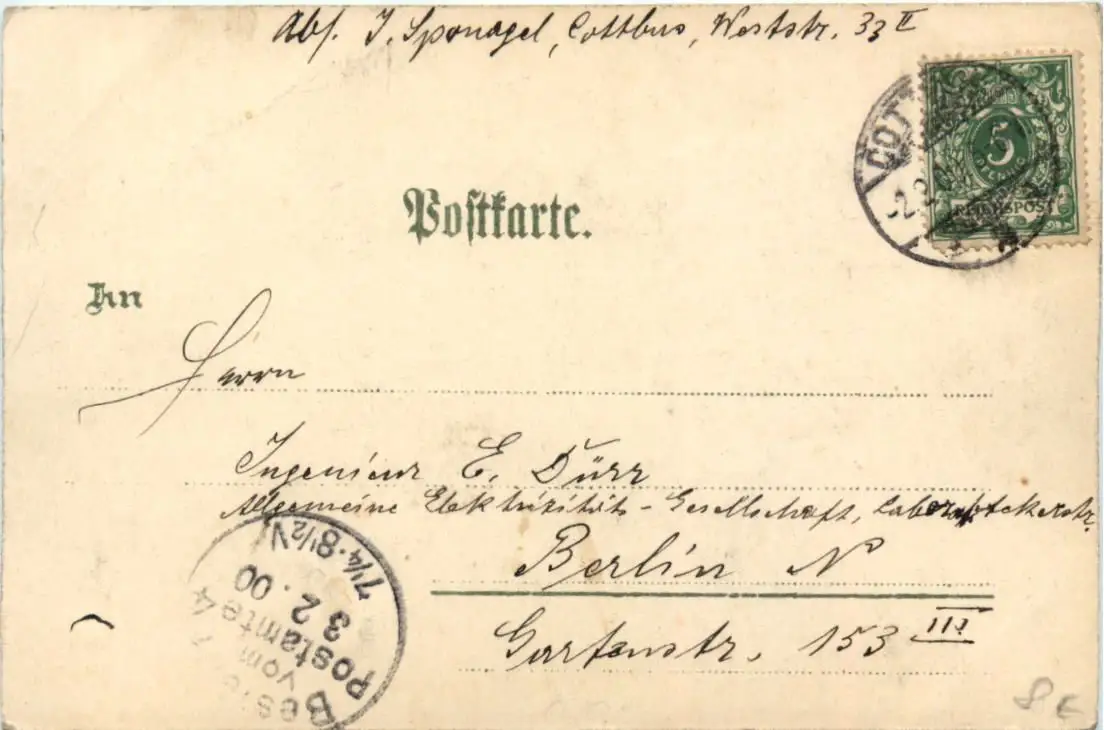 Abs. J. Sponagel, Cottbus, Weststr. 33 II
COTT
-2.2.
5
PFENNIG
REICHSPOST
Postkarte.
An
Herrn
Ingenieur E. Dürr
Allgemeine Elektrizitäts-Gesellschaft,
Berlin N
Gartenstr. 153 III
Best.
vom
Postamte 4
3 2. 00
7¼-8½V
8 €